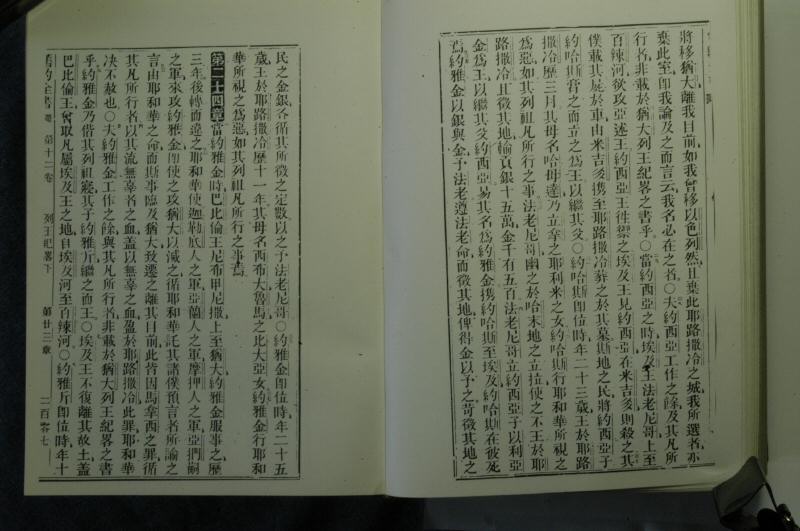 將移猶大離我目前如我曾移以色列然且棄此耶路撒冷之城我所選者亦
棄此室卽我論及之而言云我名必在之者○夫約西亞工作之餘及其凡所
行者非載於猶大列王紀畧之書乎○當約西亞之時埃及王法老尼哥上至
百辣河欲攻亞述王約西亞王徃禦之埃及王見約西亞在米吉多則殺之其
僕載其屍於車由米吉多携至耶路撒冷葬之於其墓斯地之民將約西亞子
約哈斯膏之而立之爲王以繼其父○約哈斯卽位時年二十三歲王於耶路
撒冷歷三月其母名哈母達乃立拿之耶利米之女約哈斯行耶和華所視之
爲惡如其列祖凡所行之事法老尼哥幽之於哈末地之立拉使之不王於耶
路撒冷且徵其地輸眞銀十五萬金千有五百法老尼哥立約西亞子以利亞
金爲王以繼其父約西亞易其名爲約雅金携約哈斯至埃及約哈斯在彼死
焉約雅金以銀與金予法老遵法老命而徵其地俾得金以予之苛徵其地之
民之金銀各循其所徵之定數以之予法老尼哥○約雅金卽位時年二十五
歲王於耶路撒冷歷十一年其母名西布大魯馬之比大亞女約雅金行耶和
華所視之爲惡如其列祖凡所行之事焉
第二十四章當約雅金時巴比倫王尼布甲尼撒上至猶大約雅金服事之歷
三年後轉而違之耶和華使迦勒底人之軍亞蘭人之軍摩押人之軍亞捫嗣
之軍來攻約雅金卽使之攻猶大以滅之循耶和華託其諸僕預言者所諭之
言由耶和華之命而斯事臨及猶大致遷之離其目前此皆因馬拿西之罪循
其凡所行者以其流無辜者之血蓋以無辜之血盈於耶路撒冷此罪耶和華
决不赦也○夫約雅金工作之餘與其凡所行者非載於猶大列王紀畧之書
乎約雅金乃偕其列祖寢其子約雅斤繼之而王○埃及王不復離其故土蓋
巴比倫王曾取凡屬埃及王之地自埃及河至百辣河○約雅斤卽位時年十
舊約全書 第十二卷 列王紀畧下 第廿三章 二百零七